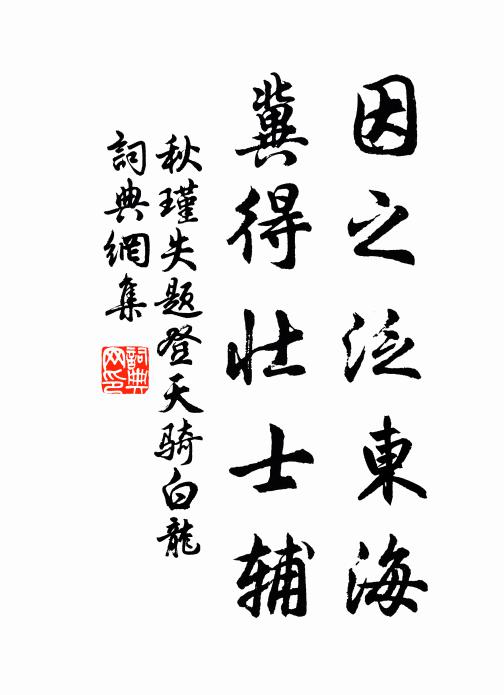 因之泛東海
冀得壮士辅
秋瑾失题登天骑白龍
詞典網集
詞典网印